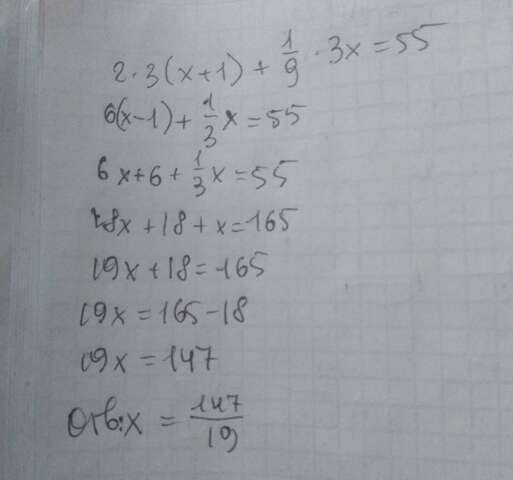 2·3(x+1) + 1/9 · 3x = 55
6(x-1) + 1/3 x = 55
6x+6 + 1/3 x = 55
18x + 18 + x = 165
19x + 18 = 165
19x = 165 - 18
19x = 147
Отв: x = 147/19